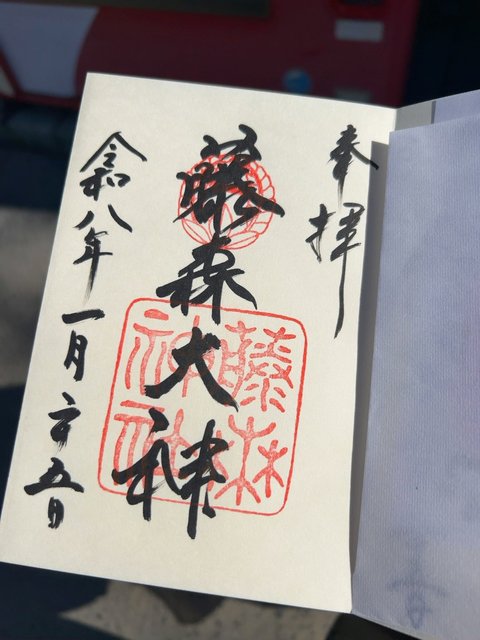 奉拝
藤森大神
藤森
神社
令和八年一月二十五日